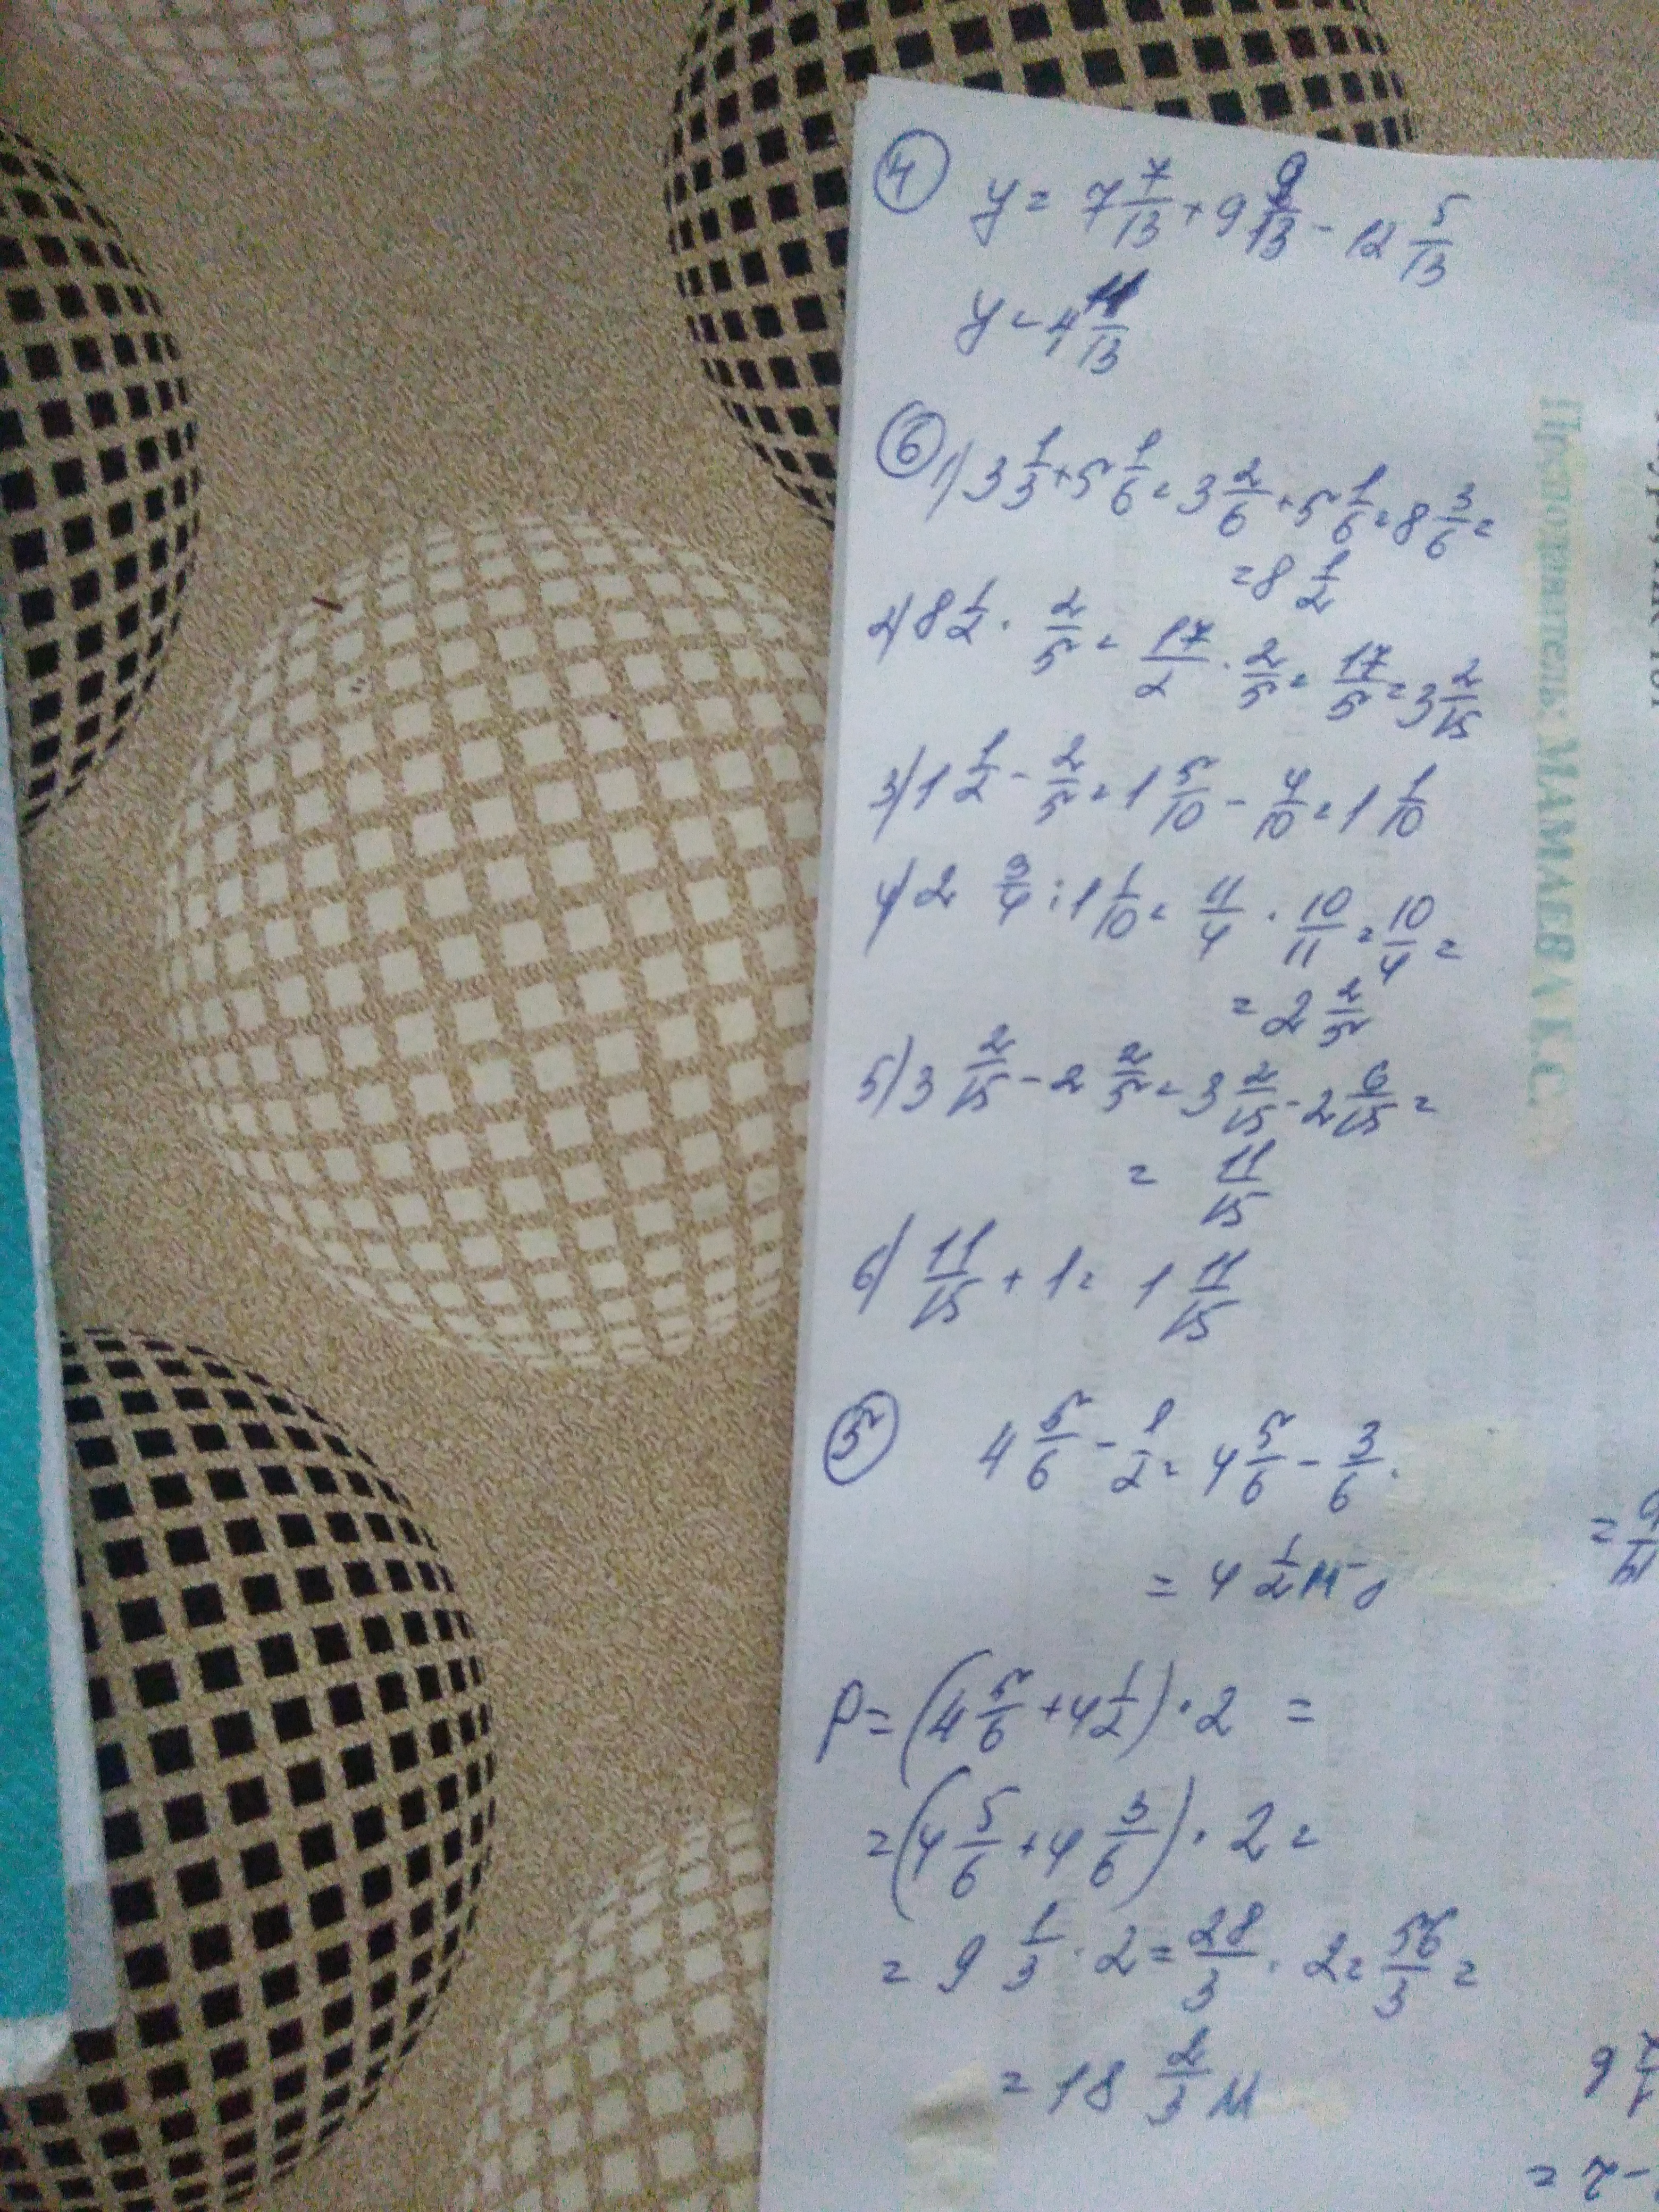 ④ y = 7 7/13 + 9 9/13 - 12 5/13
y = 4 11/13
⑥ 1) 3 1/3 + 5 1/6 = 3 2/6 + 5 1/6 = 8 3/6 =
= 8 1/2
2) 8 1/2 · 2/5 = 17/2 · 2/5 = 17/5 = 3 2/15
3) 1 1/2 - 2/5 = 1 5/10 - 4/10 = 1 1/10
4) 2 3/4 : 1 1/10 = 11/4 · 10/11 = 10/4 =
= 2 2/5
5) 3 2/15 - 2 2/5 = 3 2/15 - 2 6/15 =
= 11/15
6) 11/15 + 1 = 1 11/15
⑤ 4 5/6 - 1/2 = 4 5/6 - 3/6 .
= 4 1/2 м
P = (4 5/6 + 4 1/2) · 2 =
= (4 5/6 + 4 3/6) · 2 =
= 9 1/3 · 2 = 28/3 · 2 = 56/3 =
= 18 2/3 м
МАМАЕВА К.С.